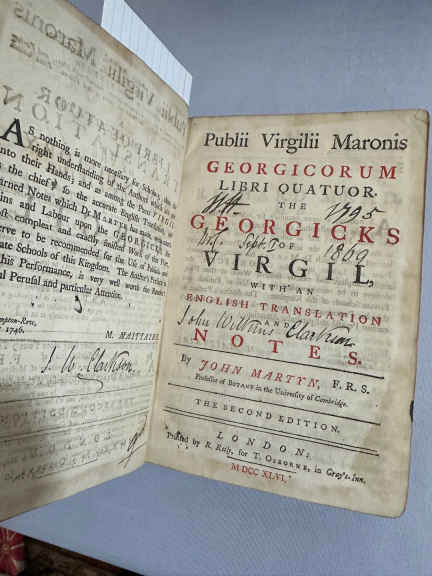 AS nothing is more necessary for Scholars, than the
right understanding of the Authors which are put
into their Hands; and as among the Poets VIRGIL
the chief; so the accurate English Translation, and
Learned Notes which Dr. MARTYN has made, with
Pains and Labour upon the GEORGICKS,
most compleat and exactly finished Work of the
serve to be recommended for the Use of Public and
Private Schools of this Kingdom. The Author's Preface to
this Performance, is very well worth the Reader's
Perusal and particular Attention.
1746.
M. MAITTAIRE.
J. W. Clarkson.
Publii Virgilii Maronis
GEORGICORUM
LIBRI QUATUOR.
THE
1795
GEORGICKS
Sept. OF 1809
VIRGIL,
WITH AN
ENGLISH TRANSLATION
AND
John Wilkins Clarkson.
NOTES.
By JOHN MARTYN, F. R. S.
Professor of BOTANY in the University of Cambridge.
THE SECOND EDITION.
LONDON:
Printed by R. Reily, for T. OSBORNE, in Gray's-Inn.
M DCC XLVI.